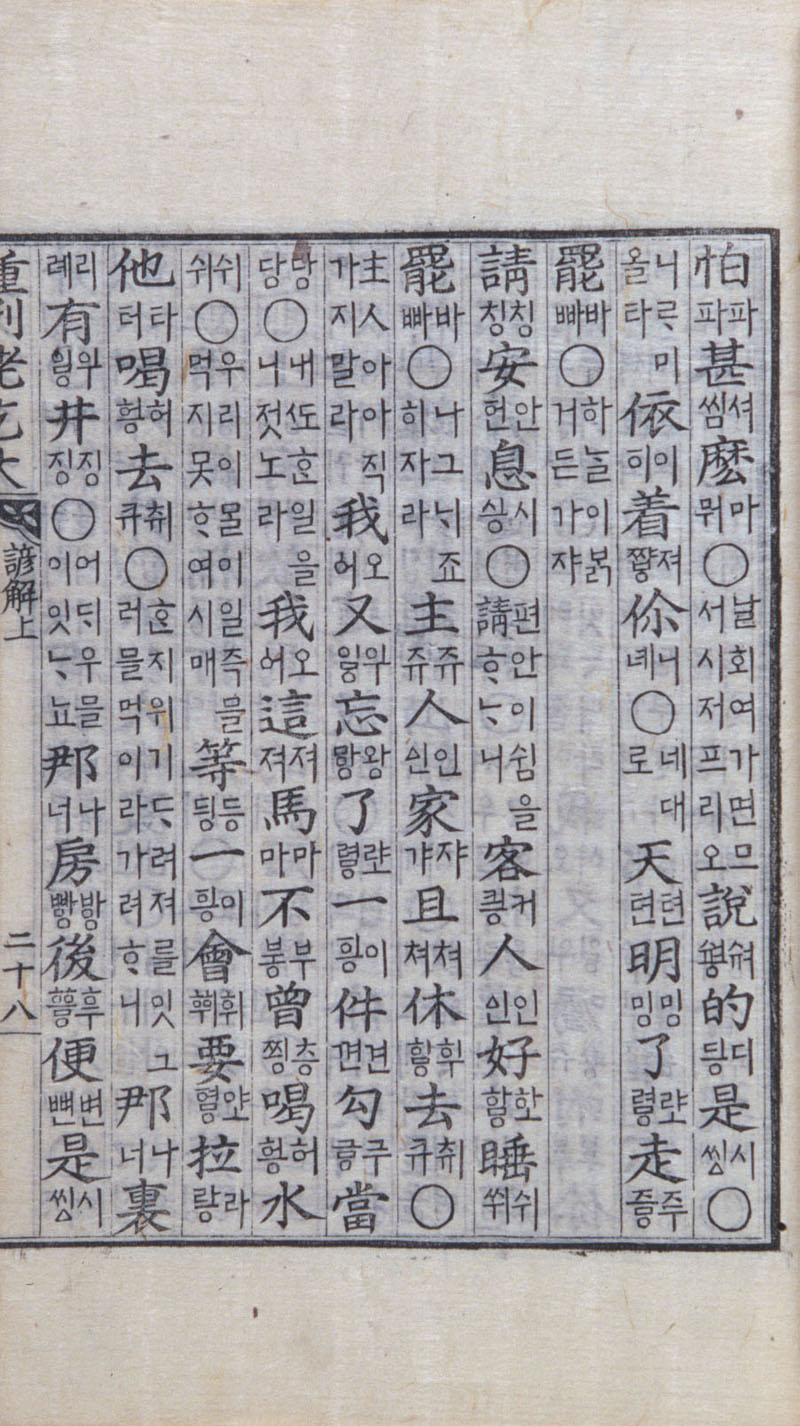 怕파파甚셔씸麽마뭐○날회여가면므서시저프리오說的디디ᇹ是시씨ᇫ○
니ᄅᆞ미올타依이히着져你니녜○네대로天텬텬明밍밍了走주즈ᇢ
罷바빠○하ᄂᆞᆯ이ᄇᆞᆰ거든가쟈
請칭칭安안헌息시시ᇹ○편안이쉼을請ᄒᆞᄂᆞ니客커크ᇹ人인인好睡쉬쒸
罷바빠○나그ᄂᆡ죠히자라主쥬쥬人인인家쟈갸且쳐쳐休去취큐○
主人아아직가지말라我오어又우이ᇢ忘왕망了一이히ᇹ件견껸勾구그ᇢ當
당당○내ᄯᅩᄒᆞᆫ일을니젓노라我오어這져져馬마마不부부ᇹ曾층찡喝허허ᇹ水
쉬쉬○우리이ᄆᆞᆯ이일즉믈먹지못ᄒᆞ여시매等등딍一이히ᇹ會휘ᅘᅱ要拉라라ᇹ
他타터喝허허ᇹ去취큐○ᄒᆞᆫ지위기ᄃᆞ려져를잇그러믈먹이라가려ᄒᆞ니那나너裏
리례有우이ᇢ井징징○어ᄃᆡ우믈잇ᄂᆞ뇨那나너房방빵後후ᅘᅳᇢ便변뼌是시씨ᇫ
重刊老乞大 諺解上 二十八